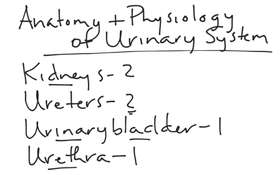 Anatomy + Physiology
of Urinary System
Kidneys - 2
Ureters - 2
Urinary bladder - 1
Urethra - 1